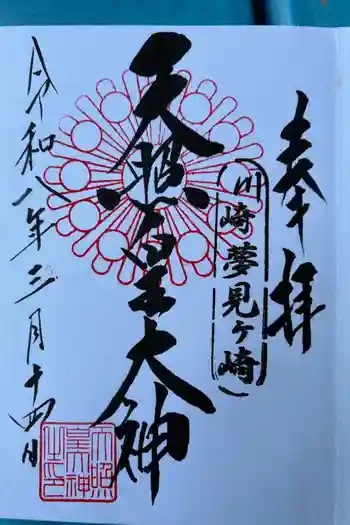 奉拝
川崎夢見ヶ崎
天照皇大神
令和八年三月十四日
天照
皇大神
之印